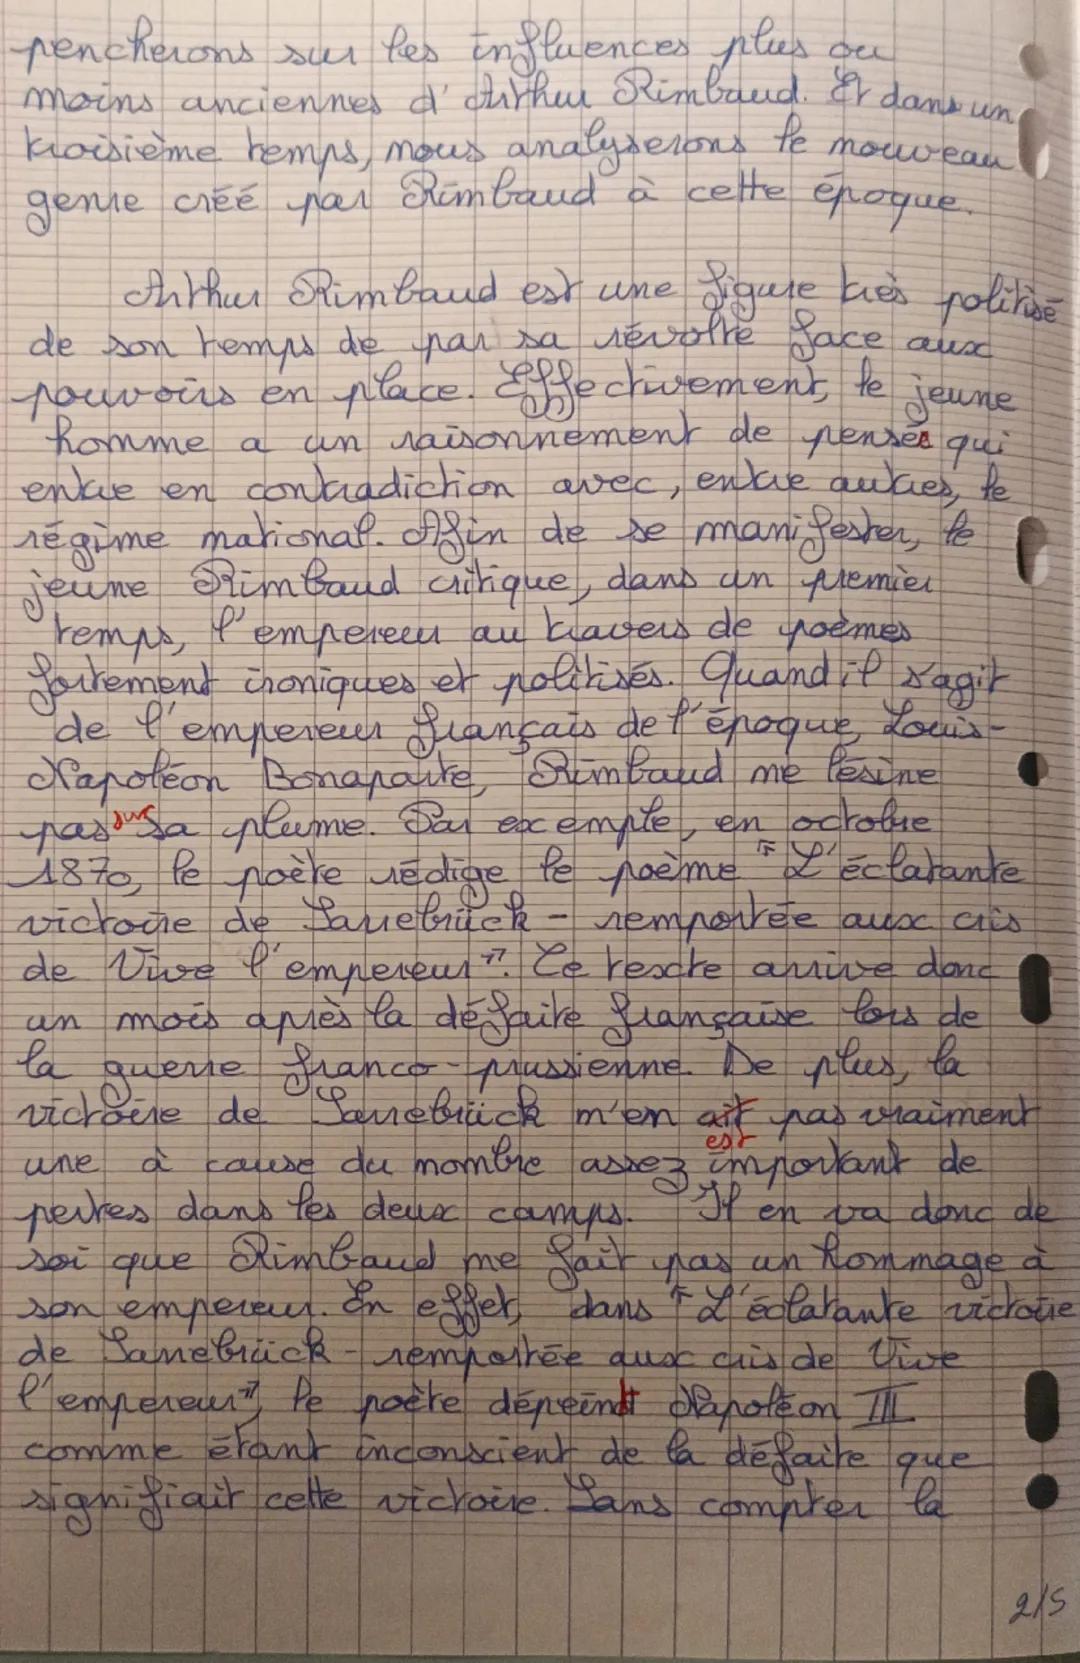 pencherons sur les influences plus ou
moins anciennes d'Arthur Rimbaud. Et dans un
troisième temps, nous analyserons le nouveau
genre créé par Rimbaud à cette époque.
Arthur Rimbaud est une figure très politisé
de son temps de par sa révolte face aux
pouvoirs en place. Effectivement, le jeune
homme a un raisonnement de pensée qui
entre en contradiction avec, entre autres, le
régime national. Afin de se manifester, le
jeune Rimbaud critique, dans un premier
temps, l'empereur au travers de poèmes
fortement ironiques et politisés. Quand il s'agit
de l'empereur français de l'époque, Louis-
Napoléon Bonaparte, Rimbaud ne lésine
pas sur sa plume. Par exemple, en octobre
1870, le poète rédige le poème "L'éclatante
victoire de Sarrebrück - remportée aux cris
de Vive l'empereur". Ce texte arrive donc
un mois après la défaite française lors de
la guerre franco-prussienne. De plus, la
victoire de Sarrebrück n'en ait pas vraiment
est
une à cause du nombre assez important de
pertes dans les deux camps. Il en va donc de
soi que Rimbaud ne fait pas un hommage à
son empereur. En effet, dans "L'éclatante victoire
de Sarrebrück - remportée aux cris de Vive
l'empereur", le poète dépeint Napoléon III
comme étant inconscient de la défaite que
signifiait cette victoire. Sans compter la
2/5